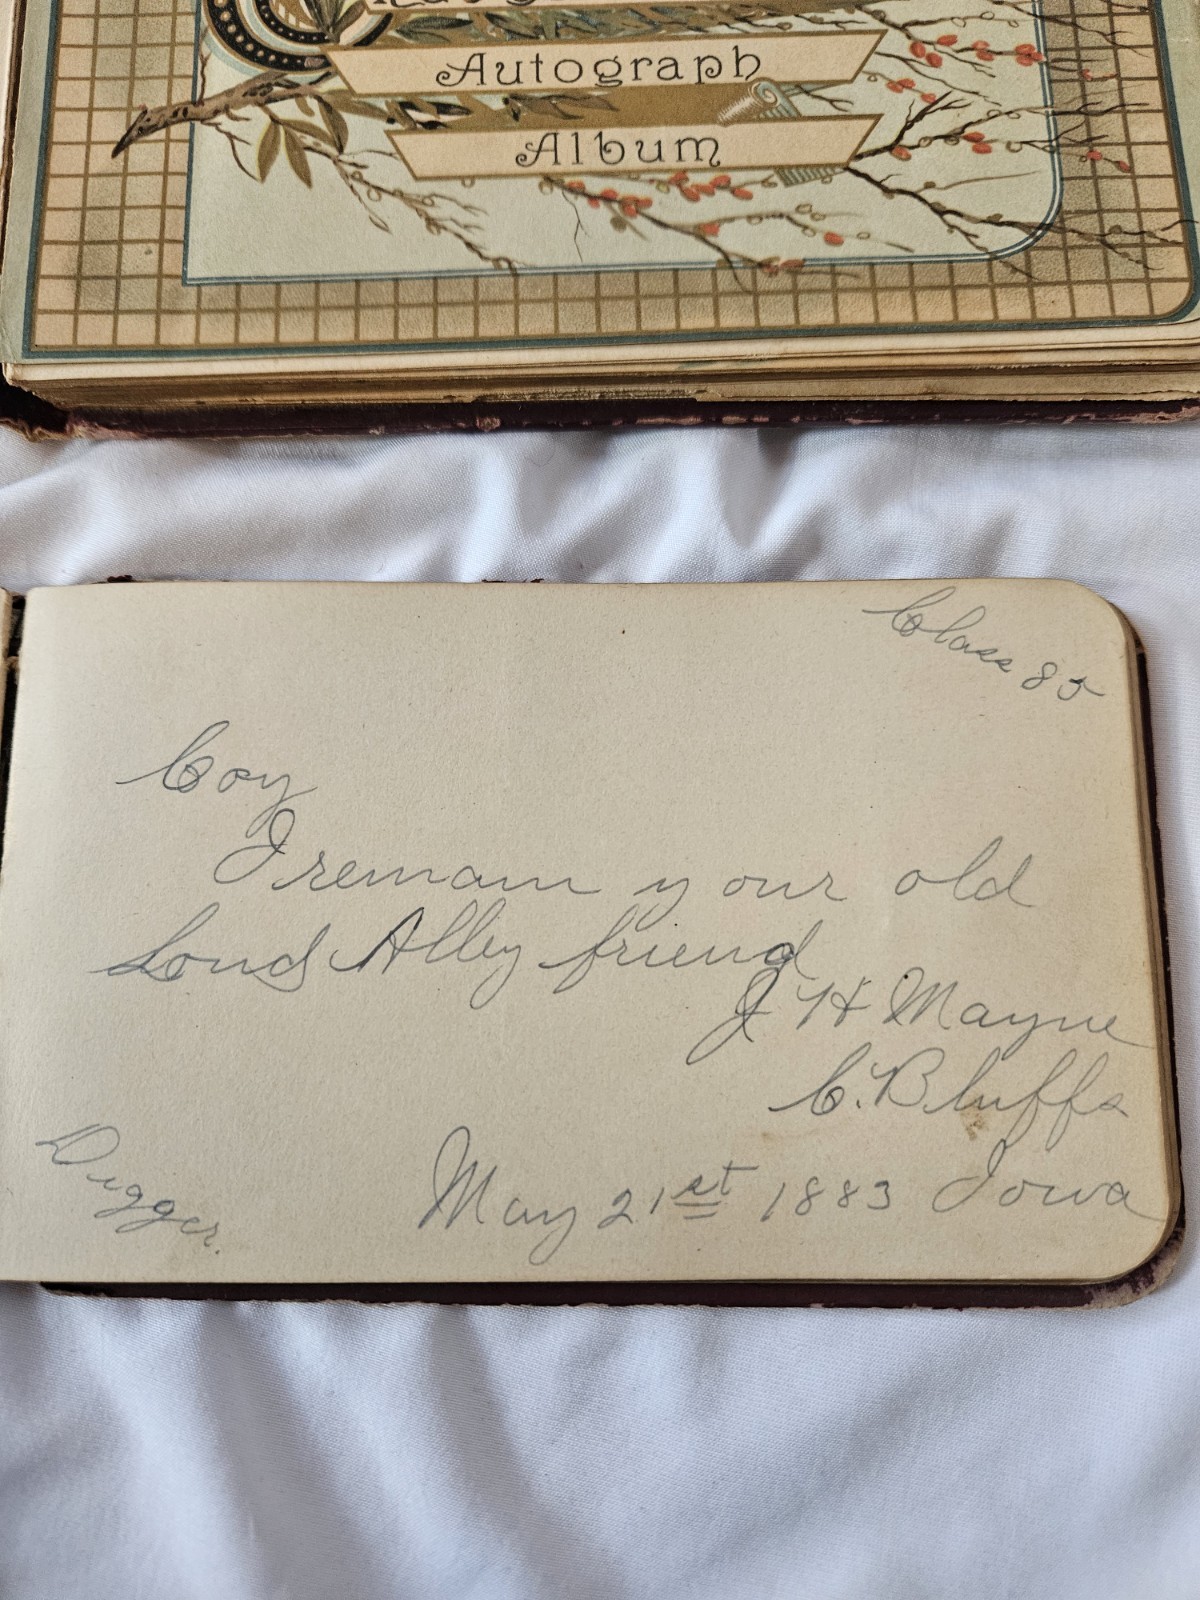 Autograph
Album
Class 85
Coy
I remain your old
Alley friend
J H Mayne
C. Bluffs
May 21st 1883 Iowa
Digger.